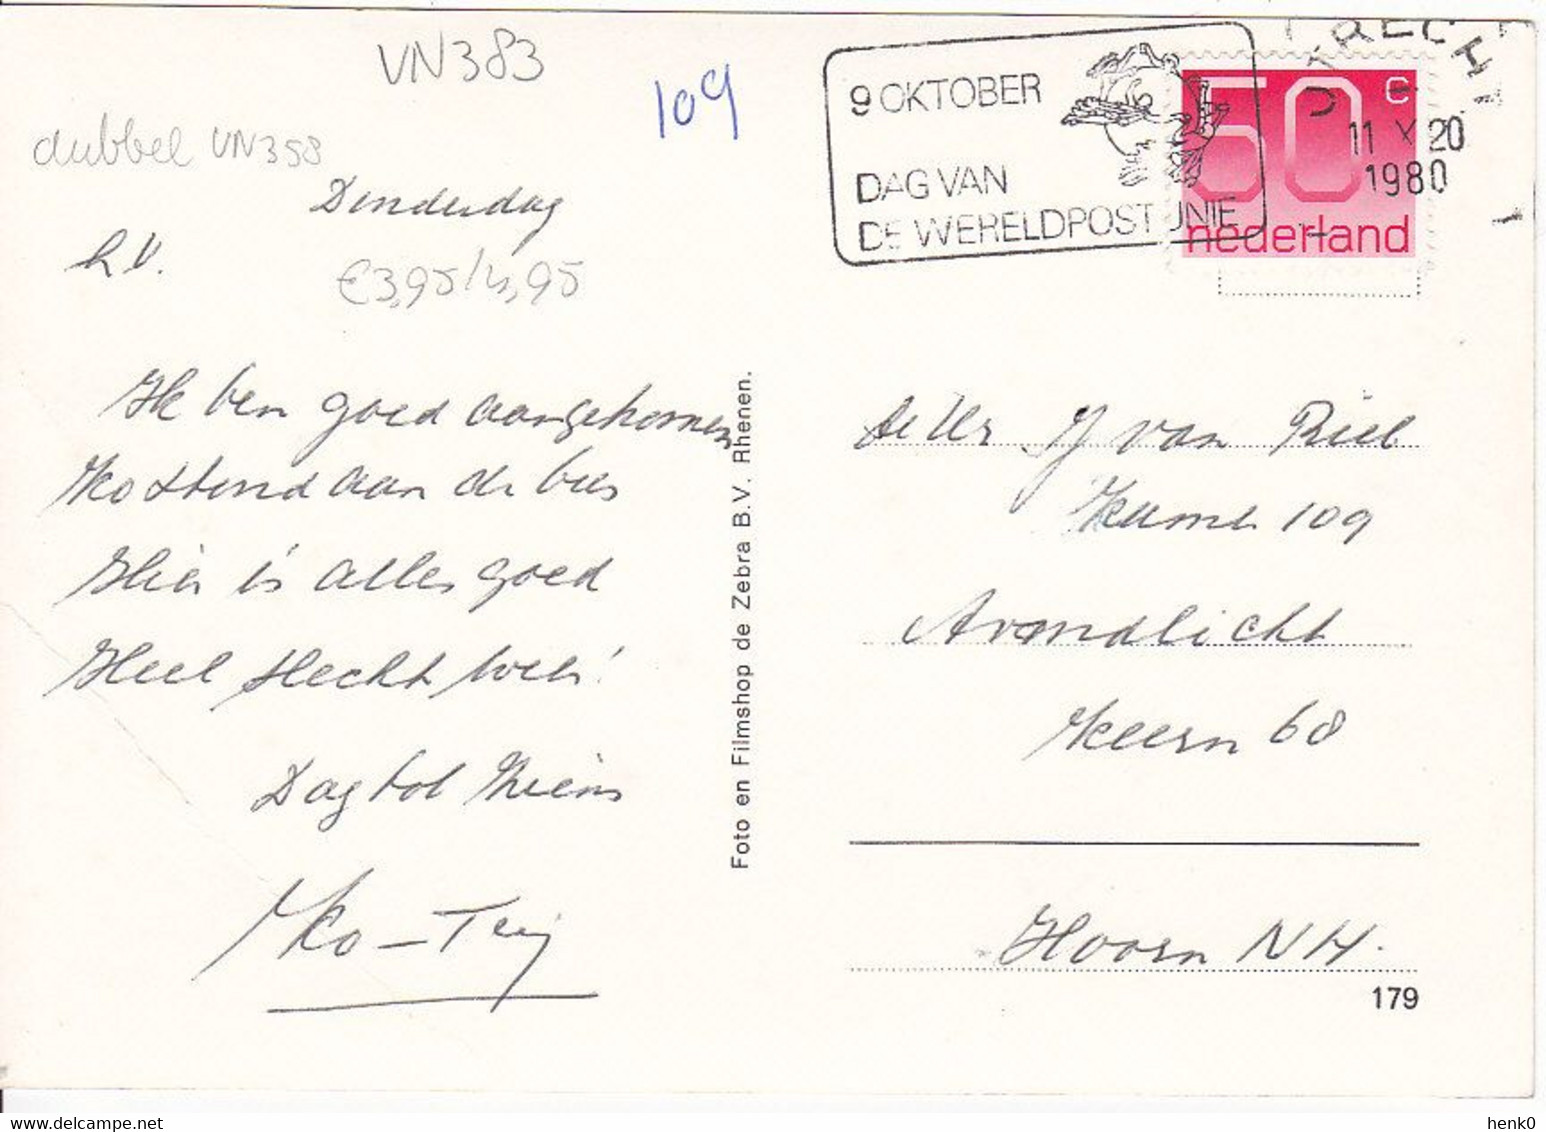 VN383
109
dubbel VN358
Donderdag
L.V.
€3,95/4,95
Ik ben goed aangekomen
Ko stond aan de bus
Hier is alles goed
Heel slecht weer!
Dag tot Ziens
Ko - Teij
Foto en Filmshop de Zebra B.V. Rhenen.
9 OKTOBER
DAG VAN
DE WERELDPOSTUNIE
UTRECHT
11 X 20
1980
50 c
nederland
van Riel
Kamer 109
Avondlicht
Keern 68
Hoorn NH.
179
henk0